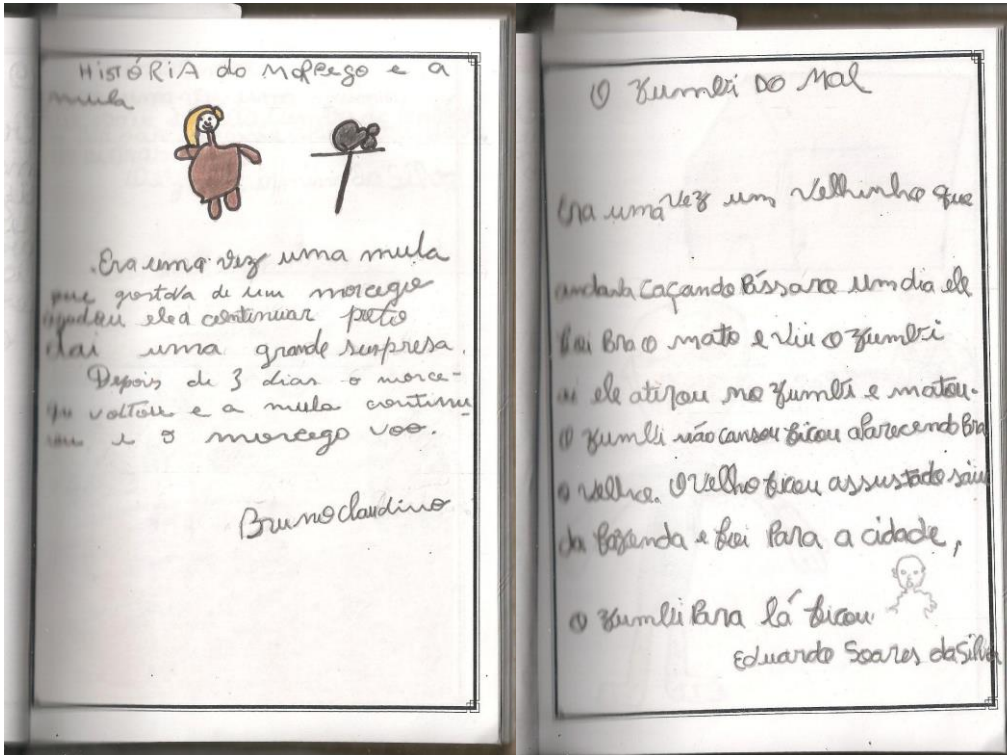 HISTÓRIA do MORCEGO e a
mula
Era uma vez uma mula
que gostava de um morcego
ajudou ele a continuar
dai uma grande suspresa.
Depois de 3 dias o morce-
go voltou e a mula continu
ou e o morcego voo.
Bruno Claudino
O Zumbi DO Mal
Era uma vez um velhinho que
andava Caçando Píssaro um dia ele
foi Bra o mato e viu o Zumbi
ai ele atirou no Zumbi e matou.
O Zumbi não cansou ficou aParecendo Bra
o velho. O velho ficou assustado saiu
da fazenda e foi Para a cidade,
O Zumbi Para lá ficou
Eduardo Soares da Silva